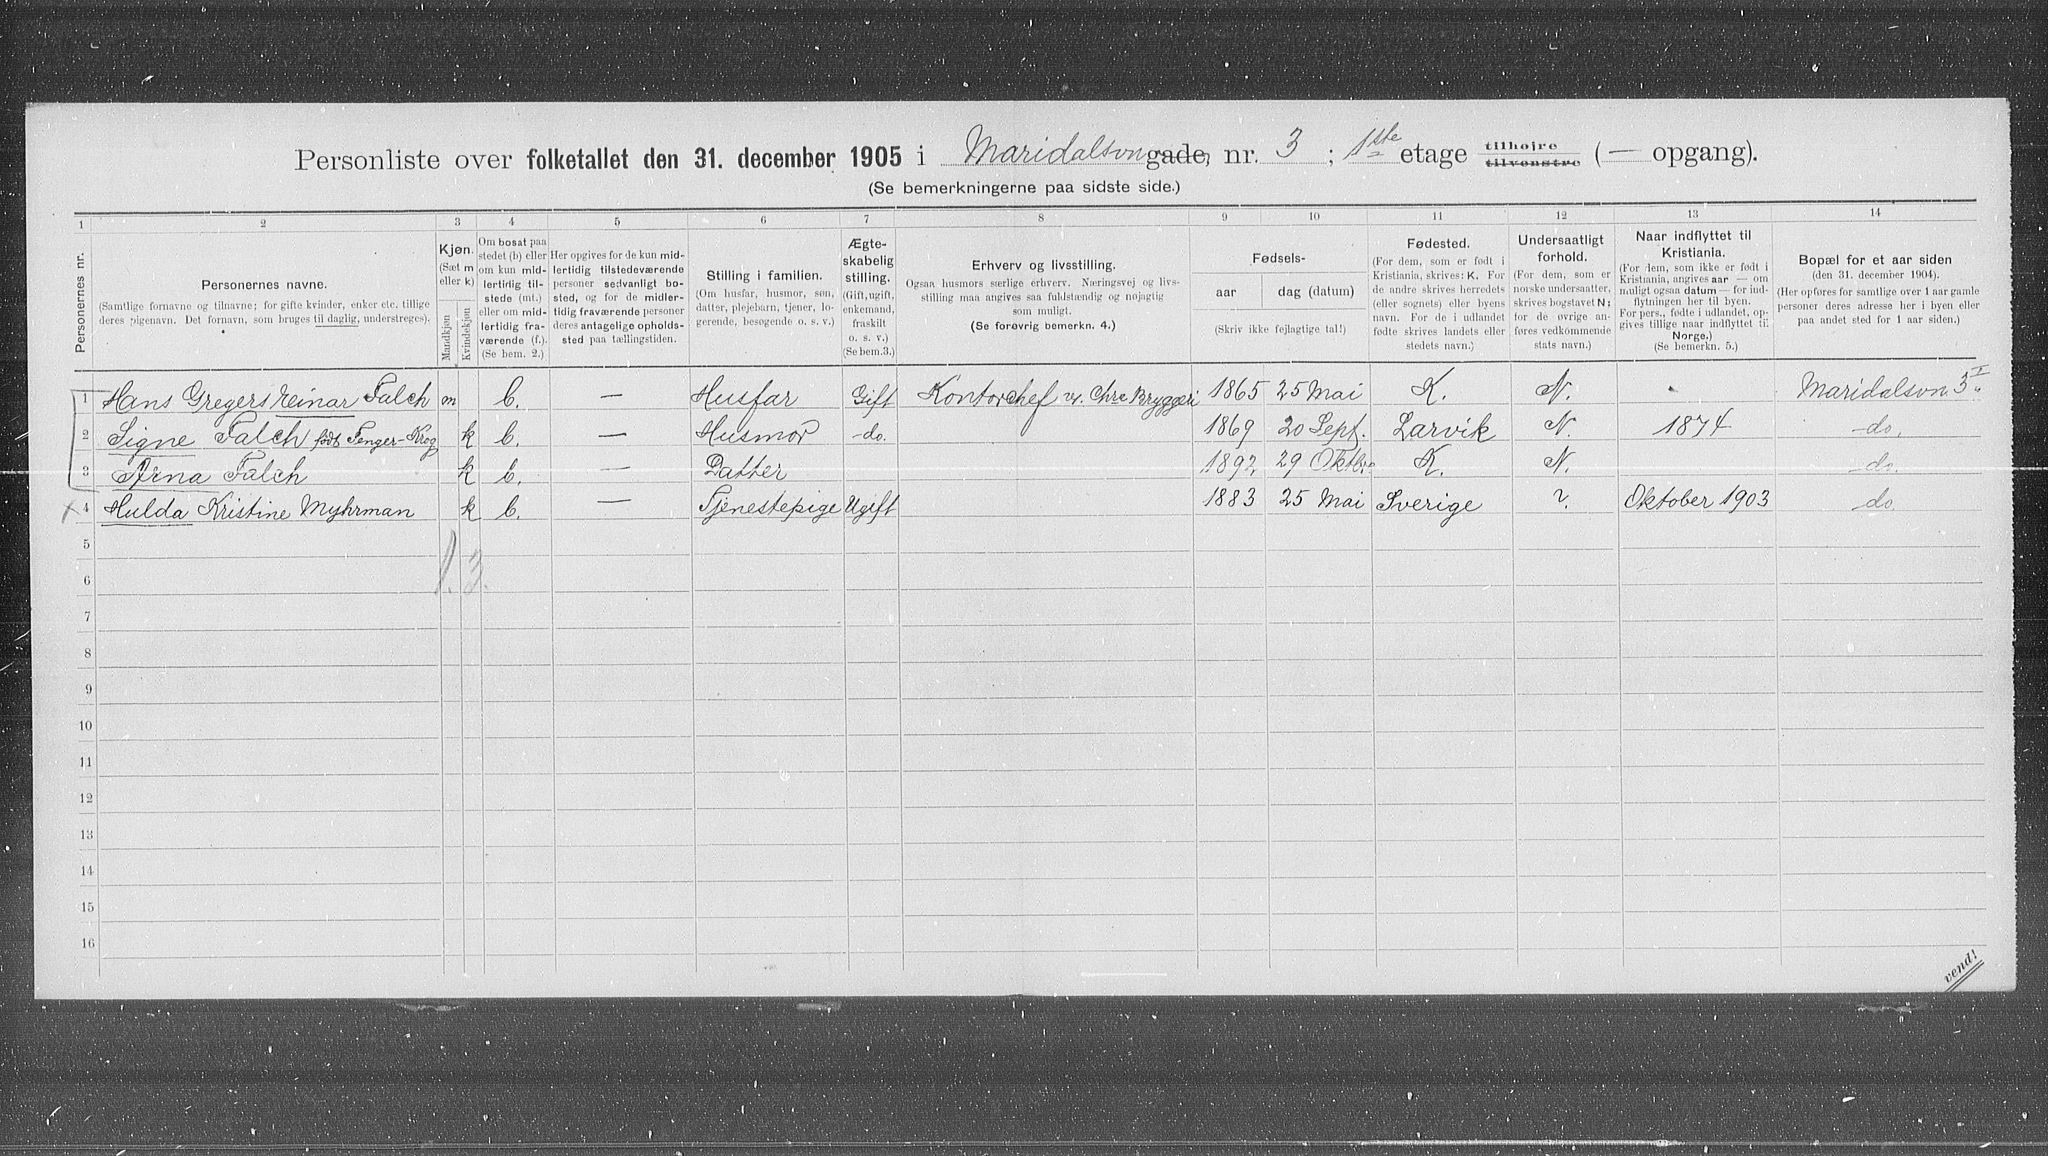 Personliste over folketallet den 31. december 1905 i Maridalsvn gade, nr. 3 ; 1ste etage tilhøjre tilvenstre (— opgang).
(Se bemerkningerne paa sidste side.)
1 2 3 4 5 6 7 8 9 10 11 12 13 14
Personernes nr.
Personernes navne.
(Samtlige fornavne og tilnavne; for gifte kvinder, enker etc. tillige
deres pigenavn. Det fornavn, som bruges til daglig, understreges).
Kjøn.
(Sæt m
eller k)
Mandkjøn
Kvindekjøn
Om bosat paa
stedet (b) eller
om kun mid-
lertidig til-
stede (mt.)
eller om mid-
lertidig fra-
værende (f.).
(Se bem. 2.)
Her opgives for de kun mid-
lertidig tilstedeværende
personer sedvanligt bo-
sted, og for de midler-
tidig fraværende personer
deres antagelige opholds-
sted paa tællingstiden.
Stilling i familien.
(Om husfar, husmor, søn,
datter, plejebarn, tjener, lo-
gerende, besøgende o. s. v.)
Ægte-
skabelig
stilling.
(Gift, ugift,
enkemand,
fraskilt
o. s. v.)
(Se bem.3.)
Erhverv og livsstilling.
Ogsaa husmors særlige erhverv. Næringsvej og livs-
stilling maa angives saa fuldstændig og nøjagtig
som muligt.
(Se forøvrig bemerkn. 4.)
Fødsels-
aar
dag (datum)
(Skriv ikke fejlagtige tal!)
Fødested.
(For dem, som er født i
Kristiania, skrives: K. For
de andre skrives herredets
(eller sognets) eller byens
navn. For de i udlandet
fødte skrives landets eller
stedets navn.)
Undersaatligt
forhold.
(For dem, som er
norske undersaatter,
skrives bogstavet N;
for de øvrige an-
føres vedkommende
stats navn.)
Naar indflyttet til
Kristiania.
(For dem, som ikke er født i
Kristiania, angives aar — om
muligt ogsaa datum — for ind-
flytningen her til byen.
For pers., fødte i udlandet, op-
gives tillige naar indflyttet til
Norge.)
(Se bemerkn. 5.)
Bopæl for et aar siden
(den 31. december 1904).
(Her opføres for samtlige over 1 aar gamle
personer deres adresse her i byen eller
paa andet sted for 1 aar siden.)
1 Hans Gregers Einar Falch m b. — Husfar Gift Kontorchef v. Chra Bryggeri 1865 25 Mai K. N. Maridalsvn. 3 I
2 Signe Falch født Fenger-Krog k b. — Husmor do. 1869 20 Sept. Larvik N. 1874 do.
3 Arna Falch k b. — Datter 1892 29 Oktbr K. N. do.
4 Hulda Kristine Myhrman k b. — Tjenestepige Ugift 1883 25 Mai Sverige ? Oktober 1903 do
5
1. 3.
6
7
8
9
10
11
12
13
14
15
16
vend!